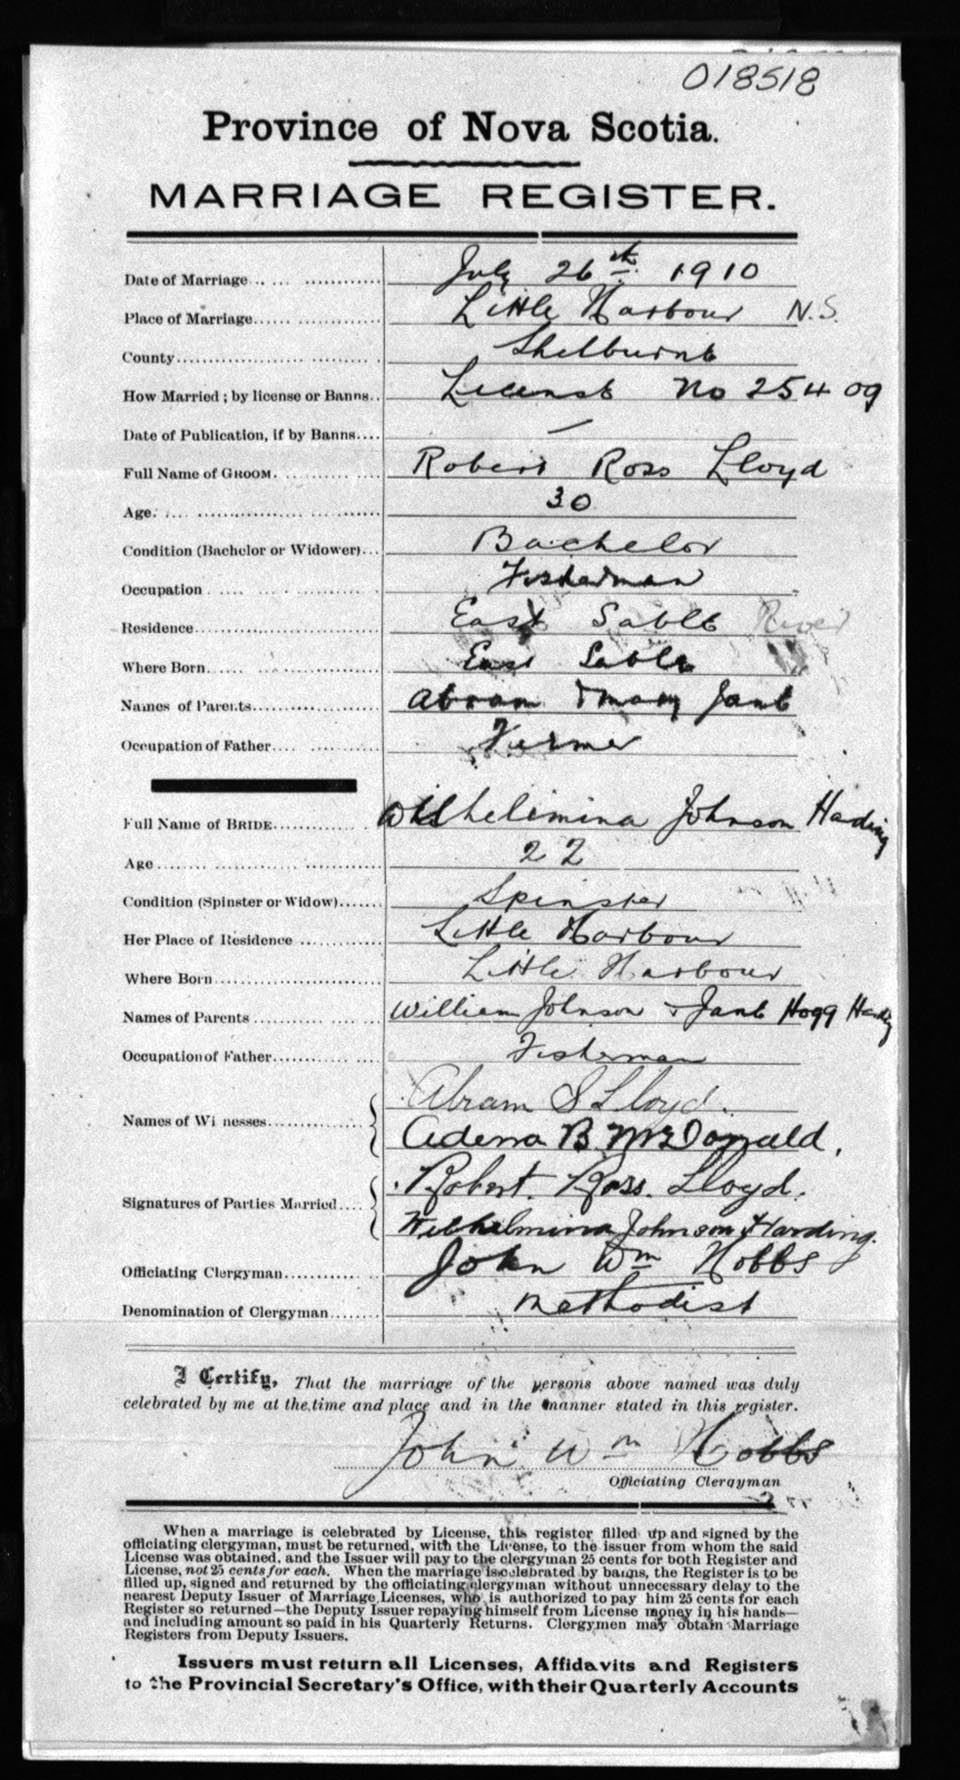 018518
Province of Nova Scotia.
MARRIAGE REGISTER.
Date of Marriage July 26th 1910
Place of Marriage Little Harbour N.S.
County Shelburne
How Married; by license or Banns License No 25409
Date of Publication, if by Banns —
Full Name of GROOM Robert Ross Lloyd
Age 30
Condition (Bachelor or Widower) Bachelor
Occupation Fisherman
Residence East Sable River
Where Born East Sable
Names of Parents Abram & Mary Jane
Occupation of Father Farmer
Full Name of BRIDE Wilhelimina Johnson Harding
Age 22
Condition (Spinster or Widow) Spinster
Her Place of Residence Little Harbour
Where Born Little Harbour
Names of Parents William Johnson & Jane Hogg Harding
Occupation of Father Fisherman
Names of Witnesses Abram S Lloyd.
Adema B McDonald,
Signatures of Parties Married Robert. Ross. Lloyd.
Wilhelmina Johnson Harding.
Officiating Clergyman John Wm Hobbs
Denomination of Clergyman Methodist
I Certify, That the marriage of the persons above named was duly
celebrated by me at the time and place and in the manner stated in this register.
John Wm Hobbs
Officiating Clergyman
When a marriage is celebrated by License, this register filled up and signed by the
officiating clergyman, must be returned, with the License, to the issuer from whom the said
License was obtained, and the Issuer will pay to the clergyman 25 cents for both Register and
License, not 25 cents for each. When the marriage is celebrated by banns, the Register is to be
filled up, signed and returned by the officiating clergyman without unnecessary delay to the
nearest Deputy Issuer of Marriage Licenses, who is authorized to pay him 25 cents for each
Register so returned—the Deputy Issuer repaying himself from License money in his hands—
and including amount so paid in his Quarterly Returns. Clergymen may obtain Marriage
Registers from Deputy Issuers.
Issuers must return all Licenses, Affidavits and Registers
to the Provincial Secretary's Office, with their Quarterly Accounts